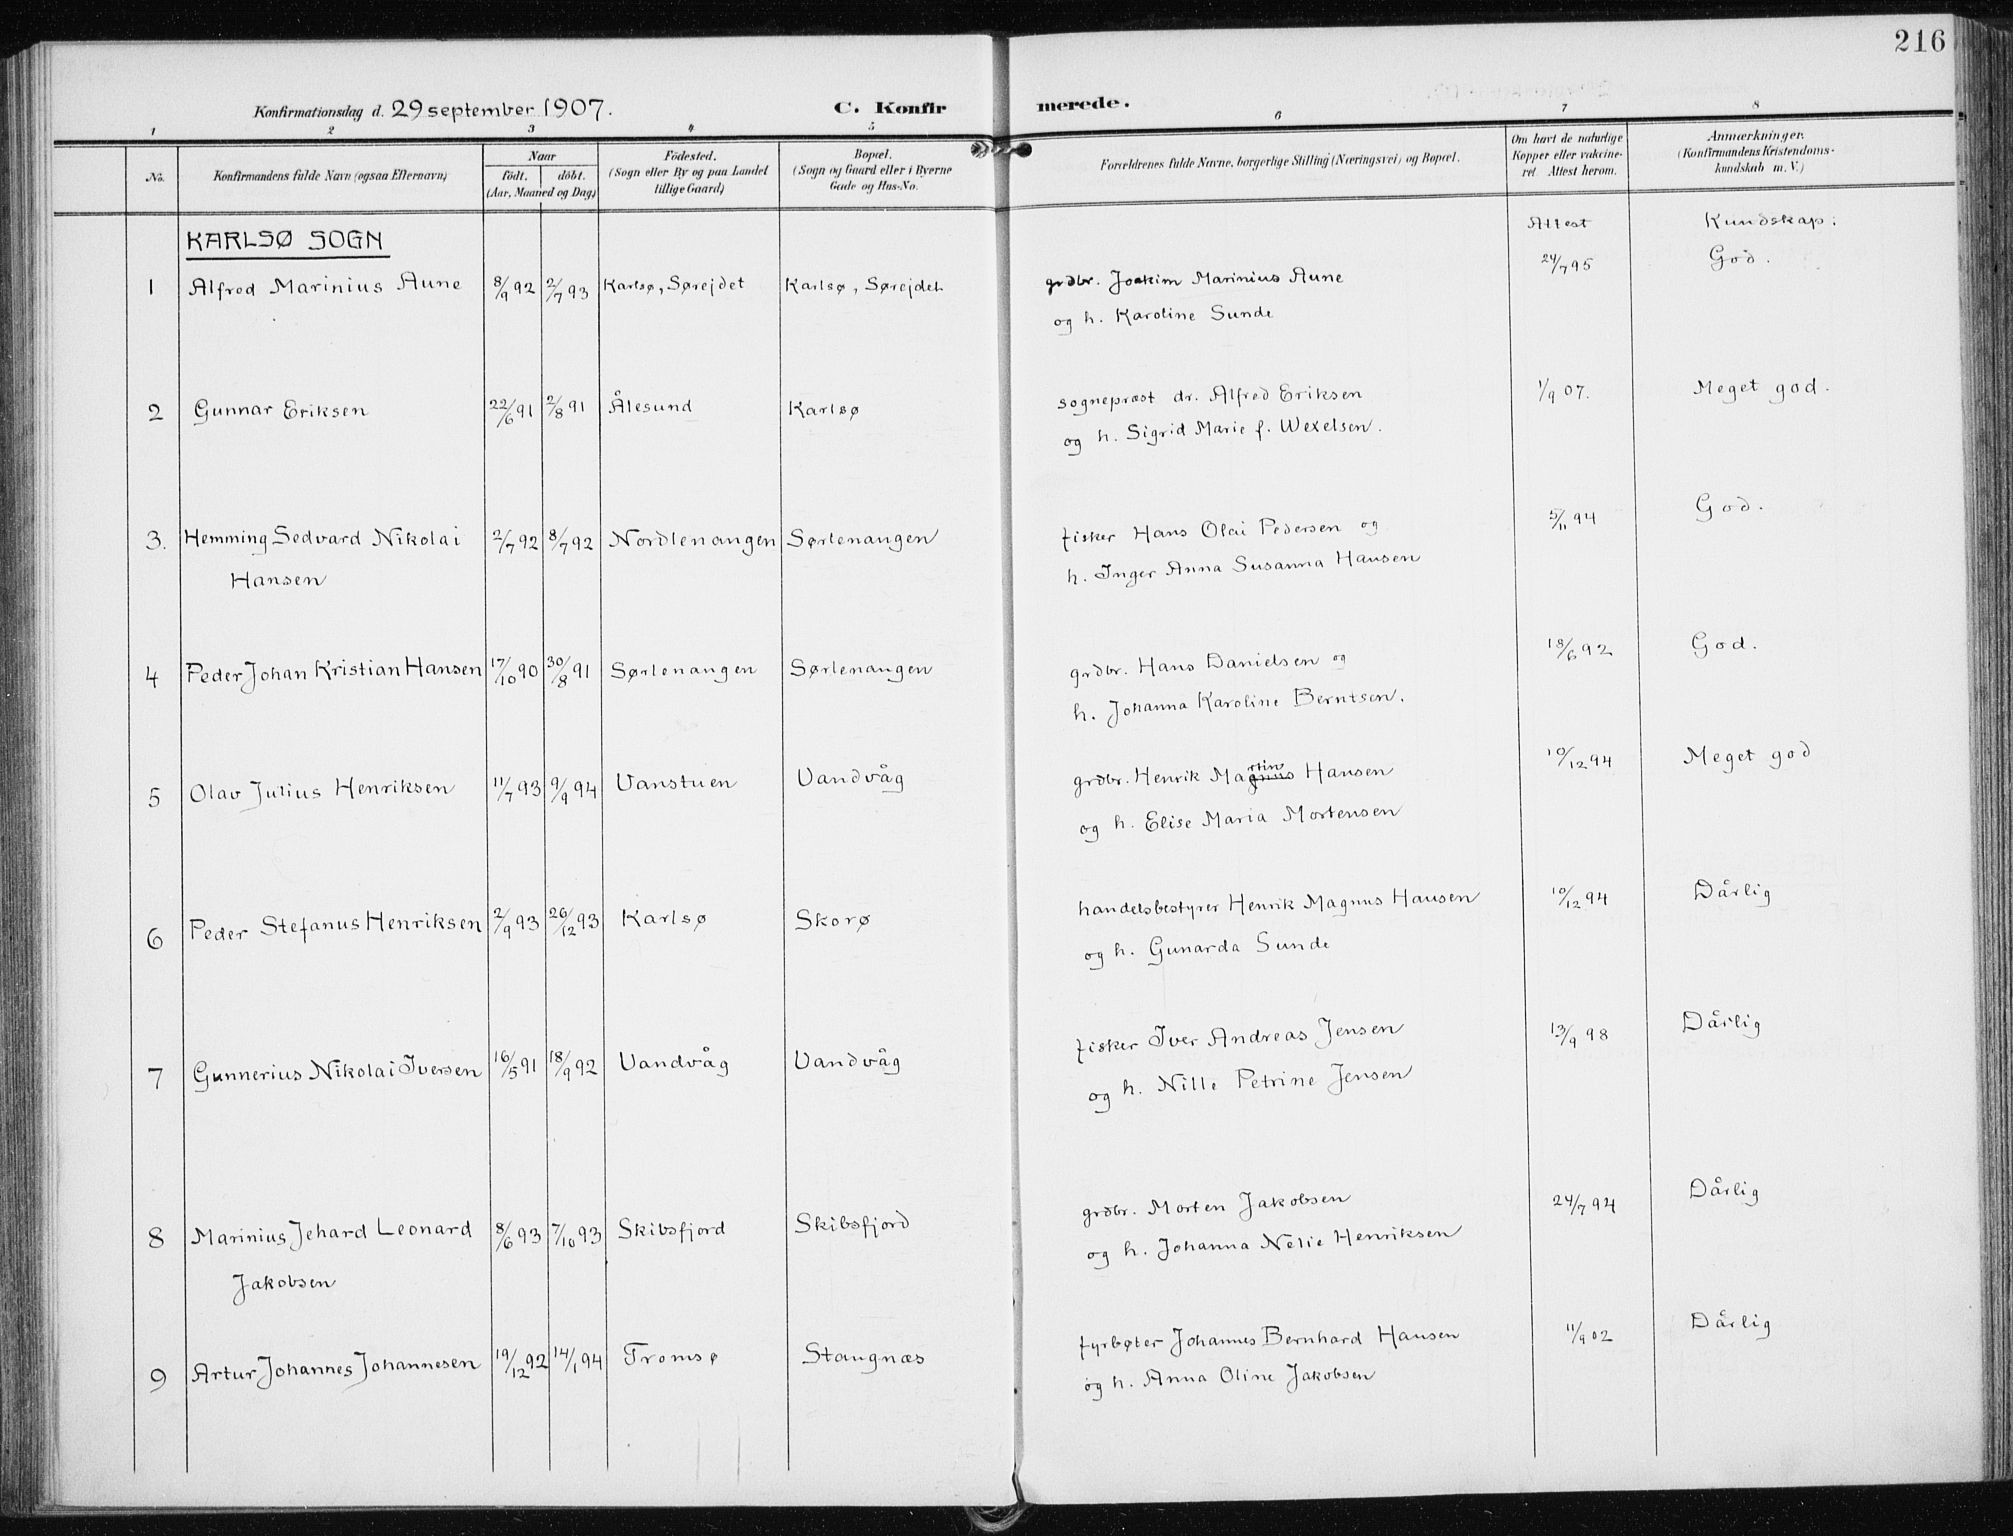 216
Konfirmationsdag d. 29 september 1907. C. Konfirmerede.
1 2 3 4 5 6 7 8
No. Konfirmandens fulde Navn (ogsaa Efternavn) Naar födt. döbt. (Aar, Maaned og Dag) Födested. (Sogn eller By og paa Landet tillige Gaard) Bopæl. (Sogn og Gaard eller i Byerne Gade og Hus-No. Forældrenes fulde Navne, borgerlige Stilling (Næringsvei) og Bopæl. Om havt de naturlige Kopper eller vakcineret. Attest herom. Anmærkninger. (Konfirmandens Kristendomskundskab m. V.)
KARLSØ SOGN Attest Kundskap:
1 Alfred Marinius Aune 8/9 92 2/7 93 Karlsø, Sørejdet Karlsø, Sørejdet grdbr. Joakim Marinius Aune 24/7 95 God.
og h. Karoline Sunde
2 Gunnar Eriksen 22/6 91 2/8 91 Ålesund Karlsø sogneprest dr. Alfred Eriksen 1/9 07. Meget god.
og h. Sigrid Marie f. Wexelsen.
3. Hemming Sedvard Nikolai 2/7 92 8/7 92 Nordlenangen Sørlenangen fisker Hans Olai Pedersen og 5/11 94 God.
Hansen h. Inger Anna Susanna Hansen
4 Peder Johan Kristian Hansen 17/10 90 30/8 91 Sørlenangen Sørlenangen grdbr. Hans Danielsen og 18/6 92 God.
h. Johanna Karoline Berntsen.
5 Olav Julius Henriksen 11/7 93 9/9 94 Vanstuen Vandvåg grdbr. Henrik Martin Hansen 10/12 94 Meget god
og h. Elise Maria Mortensen
6 Peder Stefanus Henriksen 2/9 93 26/12 93 Karlsø Skorø handelsbestyrer Henrik Magnus Hansen 10/12 94 Dårlig
og h. Gunarda Sunde
7 Gunnerius Nikolai Iversen 16/5 91 18/9 92 Vandvåg Vandvåg fisker Iver Andreas Jensen 13/9 98 Dårlig
og h. Nille Petrine Jensen
8 Marinius Jehard Leonard 8/6 93 7/10 93 Skibsfjord Skibsfjord grdbr. Morten Jakobsen 24/7 94 Dårlig
Jakobsen og h. Johanna Nelie Henriksen
9 Artur Johannes Johannesen 19/12 92 14/1 94 Tromsø Stangnæs fyrbøter Johannes Bernhard Hansen 11/9 02 Dårlig
og h. Anna Oline Jakobsen